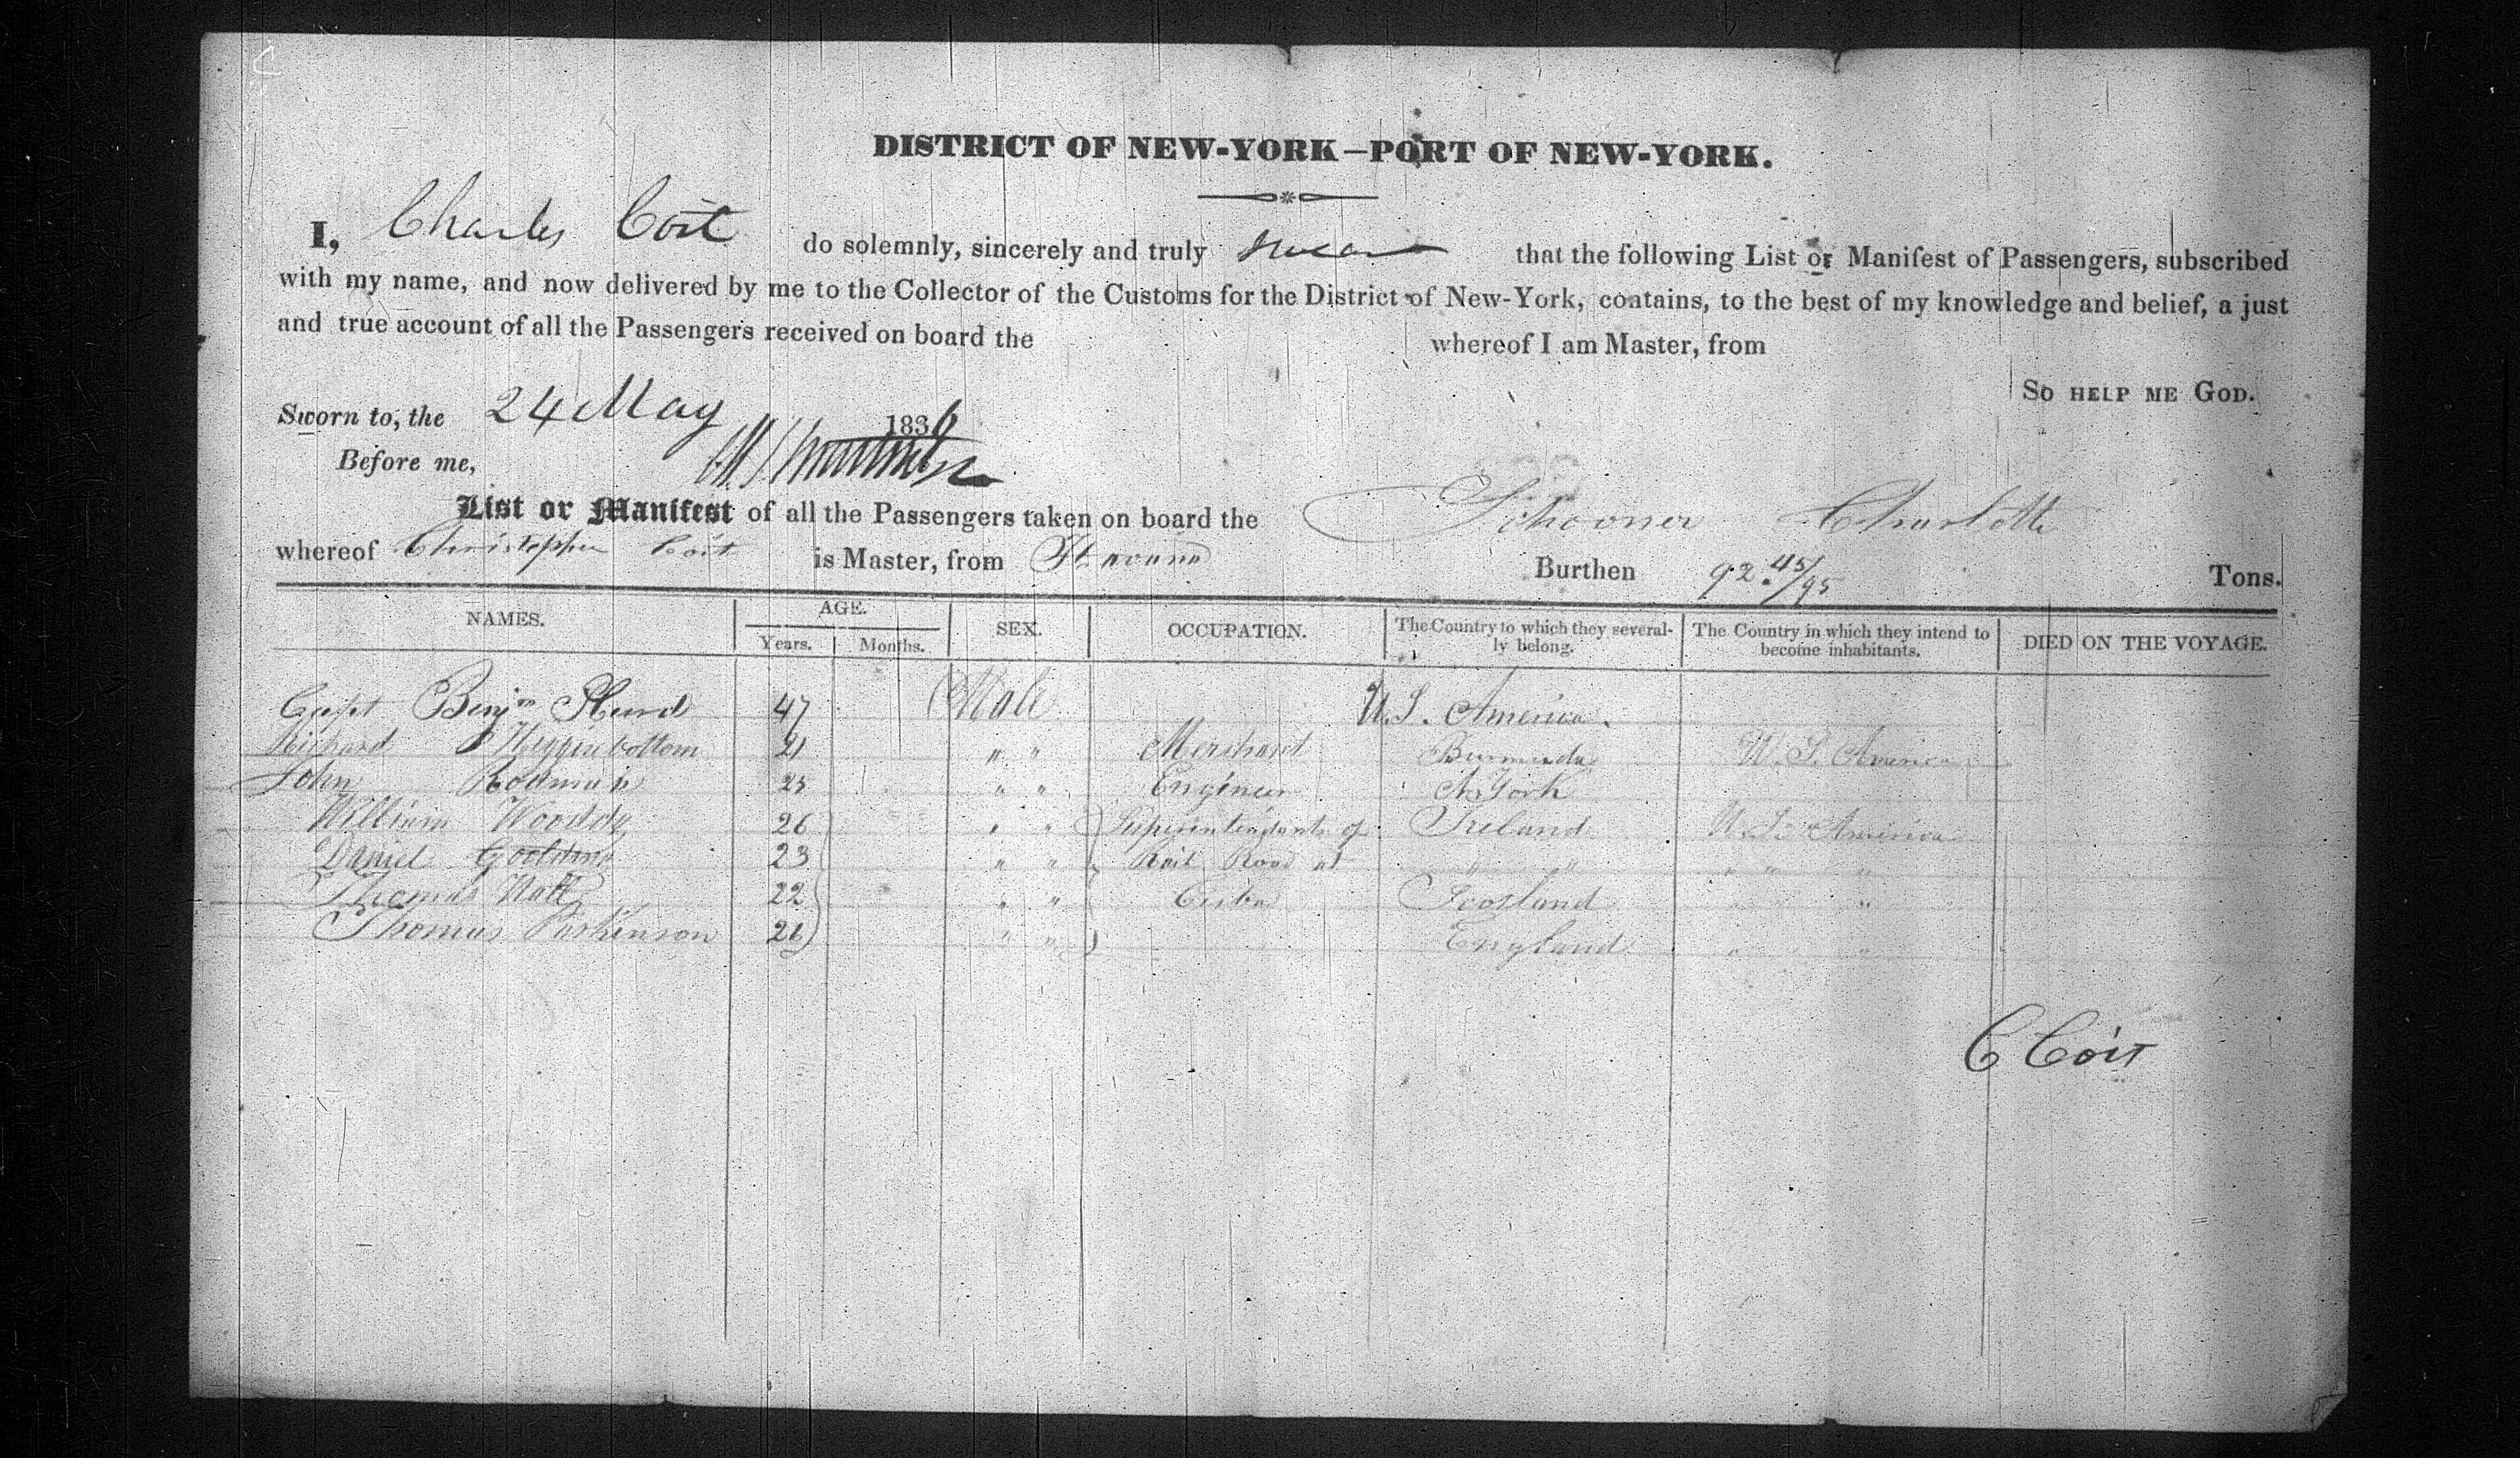 DISTRICT OF NEW-YORK—PORT OF NEW-YORK.
I, Charles Coit do solemnly, sincerely and truly swear that the following List or Manifest of Passengers, subscribed
with my name, and now delivered by me to the Collector of the Customs for the District of New-York, contains, to the best of my knowledge and belief, a just
and true account of all the Passengers received on board the whereof I am Master, from
SO HELP ME GOD.
Sworn to, the 24 May 1836
Before me,
List or Manifest of all the Passengers taken on board the Schooner Charlotte
whereof Christopher Coit is Master, from Havana Burthen 92 45/95 Tons.
NAMES. AGE. SEX. OCCUPATION. The Country to which they several- The Country in which they intend to DIED ON THE VOYAGE.
Years. Months. ly belong. become inhabitants.
Capt Benjn Hurd 47 Male U.S. America.
Richard Higginbottom 21 " " Merchant Bermuda U.S. America
John Rodman 25 " " Engineer N York
William 26 " " Superintendants of Ireland U.S. America
Daniel Golding 23 " " Rail Road at " " " " "
Thomas 22 " " Cuba Scotland " "
Thomas Parkinson 26 " " England " "
C Coit